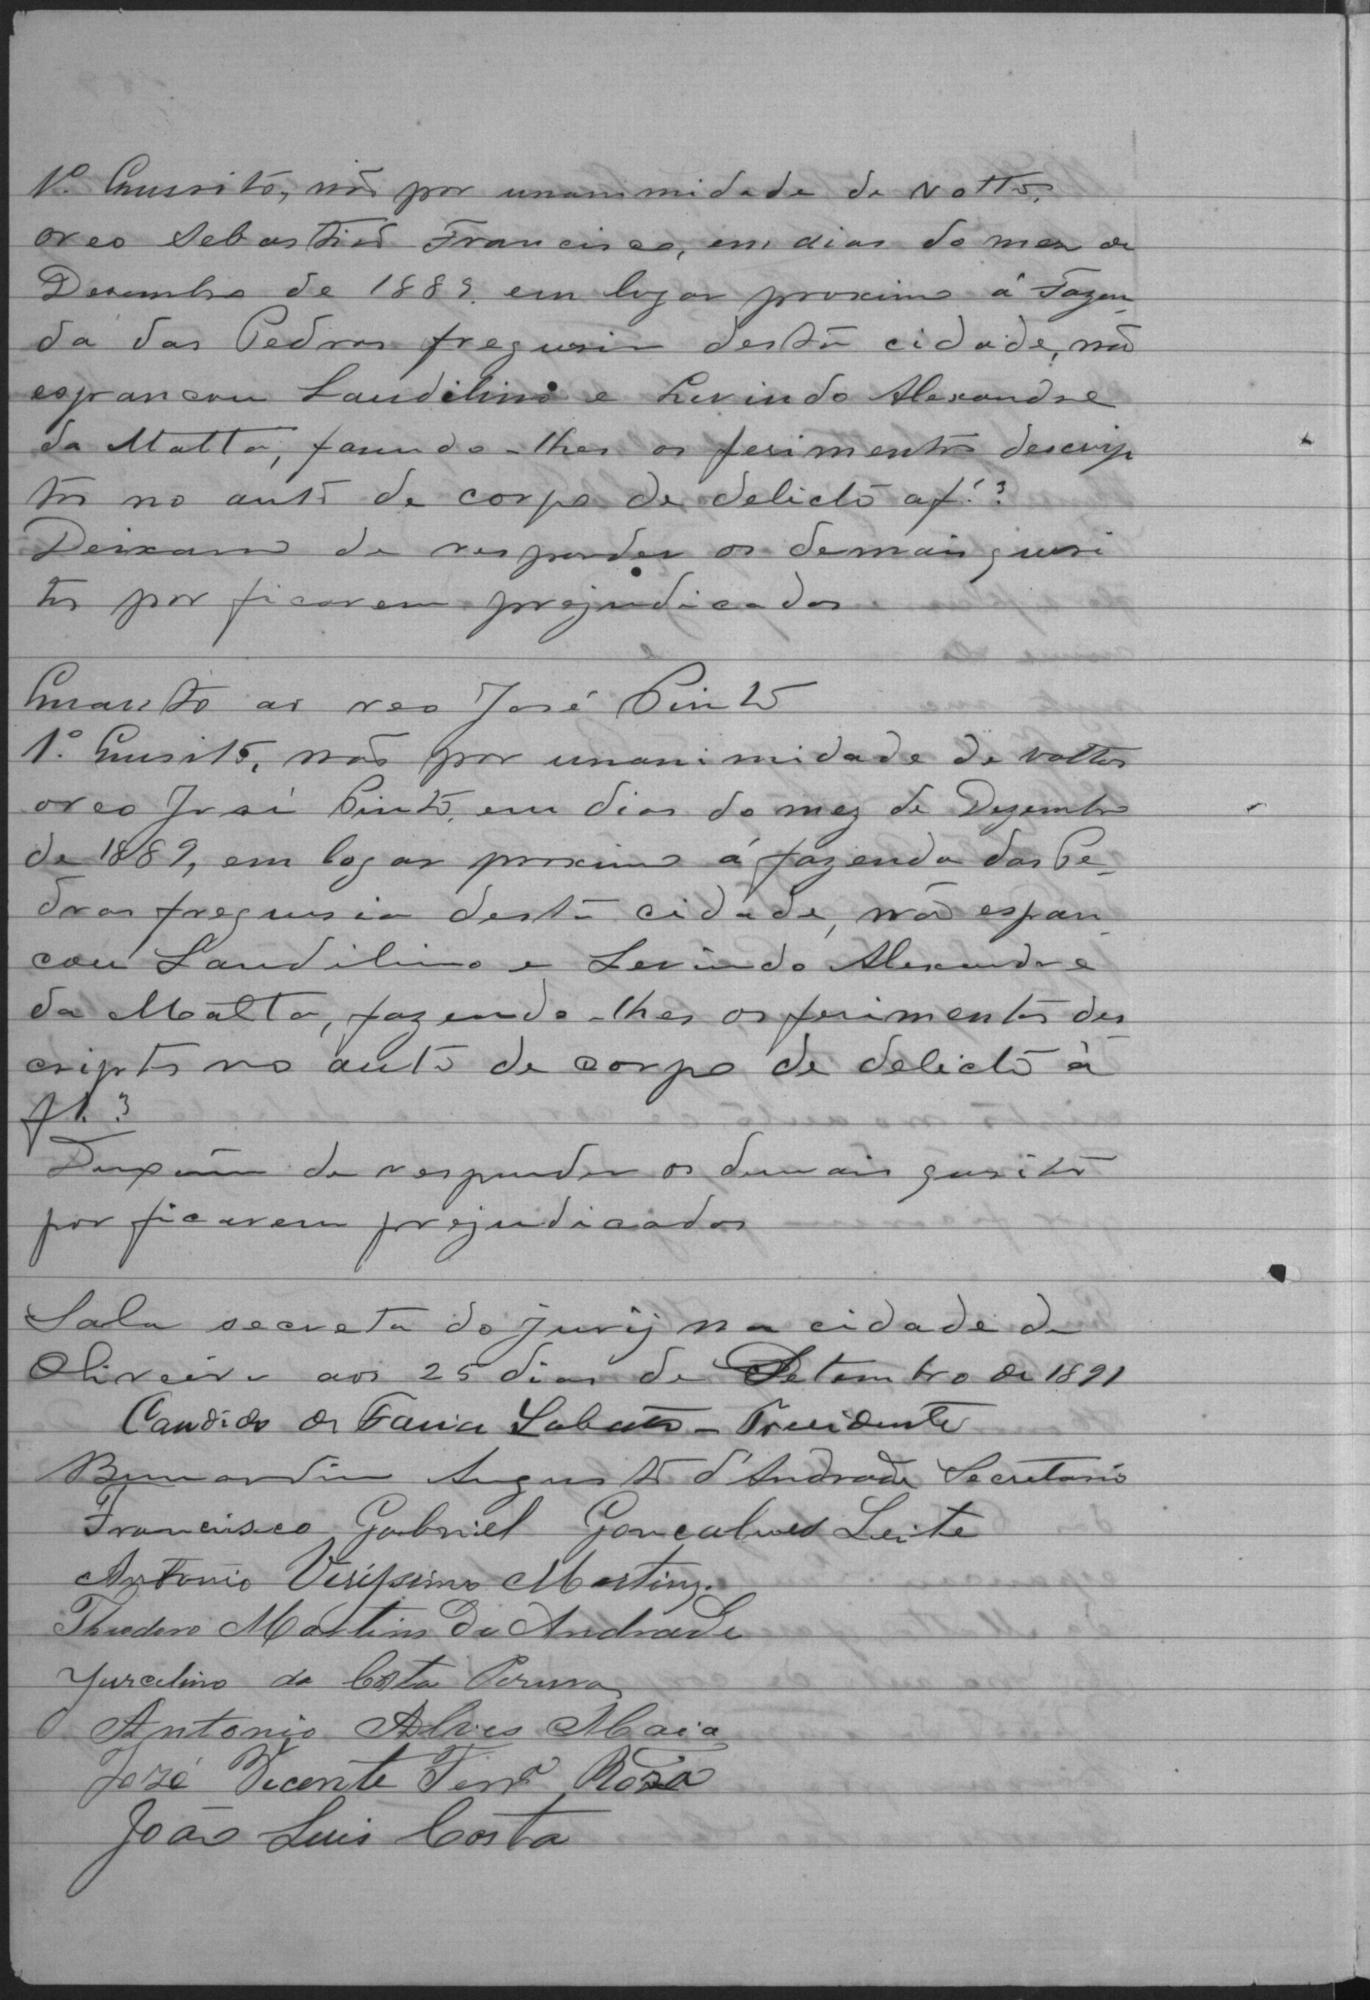 1º. Quesito, não por unanimidade de vottos,
o reo Sebastião Francisco, em dias do mez de
Dezembro de 1889. em logar proximo á Fazen-
da das Pedras freguesia desta cidade, não
espancou Laudilino e Levindo Alexandre
da Matta, fazendo-lhes os ferimentos descrip
tos no auto de corpo de delicto a f. 3
Deixaram de responder os demais quesi
tos por ficarem prejudicados
Quanto ao reo José Pinto
1º. Quesito, não por unanimidade de vottos
o reo José Pinto, em dias do mez de Dezembro
de 1889, em logar proximo á fazenda das Pe-
dras freguesia desta cidade, não espan-
cou Laudilino e Levindo Alexandre
da Matta, fazendo-lhes os ferimentos des
criptos no auto de corpo de delicto à
fl. 3
Deixaram de responder os demais quesitos
por ficarem prejudicados
Sala secreta do jury na cidade de
Oliveira aos 25 dias de Setembro de 1891
Candido de Faria Lobato - Presidente
Bernardino Augusto d'Andrade Secretario
Francisco Gabriel Gonçalves Leite
Antonio Verissimo Martins.
Theodoro Martins De Andrade
Jurcelino da Costa Pereira
Antonio Alves Maia
José Vicente Ferrª Roza
João Luis Costa